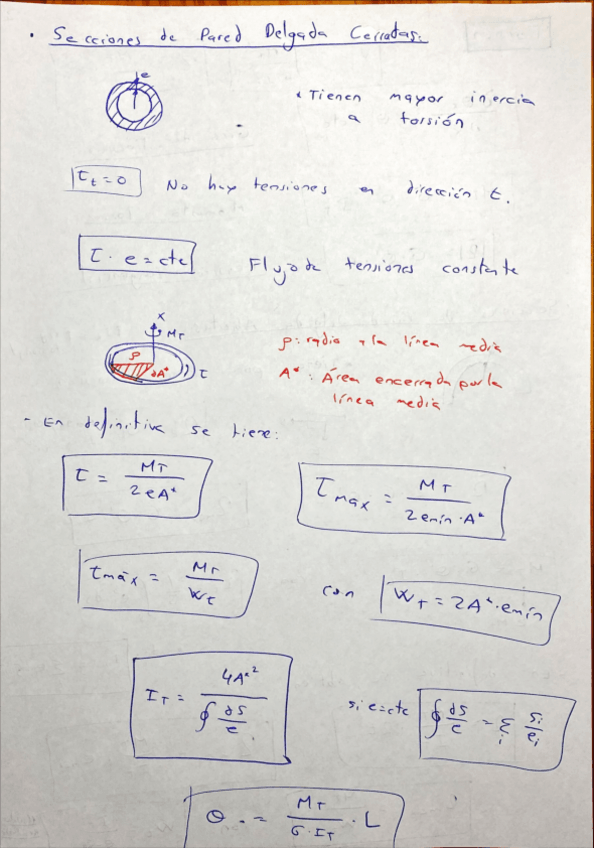 • Secciones de Pared Delgada Cerradas:
e
• Tienen mayor inercia
a torsión
τt = 0 No hay tensiones en dirección t.
τ · e = cte Flujo de tensiones constante
x
MT
ρ
dA*
τ
ρ: radio a la línea media
A*: Área encerrada por la
línea media
- En definitiva se tiene:
τ = MT / 2eA*
τmax = MT / 2emín·A*
τmáx = MT / Wτ con WT = 2A*·emín
IT = 4A*² / ∮ ds/e si e=cte ∮ ds/e = Σi si/ei
θ = MT / G·IT · L